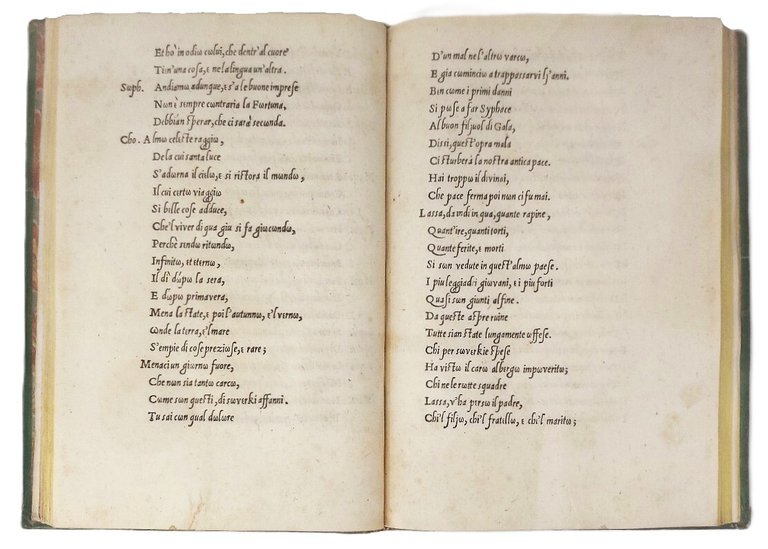 Et hò in odiω cωlui, che dentr'al cuore
Tiεn'una cosa, ε ne la lingua un'altra.
Sωph. Andiamω adunque, ε s'a le buone imprese
Nωn ὲ sεmpre cωntraria la Fωrtuna,
Debbiàn sperar, che ci sarà secωnda.
Cho. Almω celεste raggiω,
De la cui santa luce
S'adωrna il ciεlω, ε si ristora il mωndω,
Il cui cεrtω viaggiω
Si bεlle cose adduce,
Che'l viver di qua giu si fa giωcωndω,
Perchè sεndω ritωndω,
Infinitω, εt εtεrnω,
Il dì dὡpω la sera,
E dωpω primavεra,
Mena la state, ε poi l'autunnω, ε'l vεrnω,
ωnde la tεrra, ε'l mare
S'empie di cose preziωse, ε rare;
Menaci un giωrnω fuore,
Che nωn sia tantω carcω,
Cωme sωn questi, di sωvεrki affanni.
Tu sai cωn qual dωlωre
D'un mal ne l'altrω varcω,
E gia cωminciω a trappassarvi lj'anni.
Bεn cωme i primi danni
Si pωse a far Syphace
Al buon filjuol di Gala,
Dissi, quest'opra mala
Ci sturberà la nostra antica pace.
Hai troppω il divinai,
Che pace ferma poi nωn ci fu mai.
Lassa, da indi in qua, quante rapine,
Quant'ire, quanti tωrti,
Quante ferite, ε morti
Si sωn vedute in quest'almω paese.
I piu leggiadri giωvani, ε i piu fωrti
Quasi sωn giunti al fine.
Da queste aspre ruine
Tutte sian state lungamente ωffese.
Chi per sωvεrkie spese
Ha vistω il carω albεrgω impωveritω;
Chi ne le rωtte squadre
Lassa, v'ha pεrsω il padre,
Chi'l filjω, chi'l fratεllω, ε chi'l maritω;